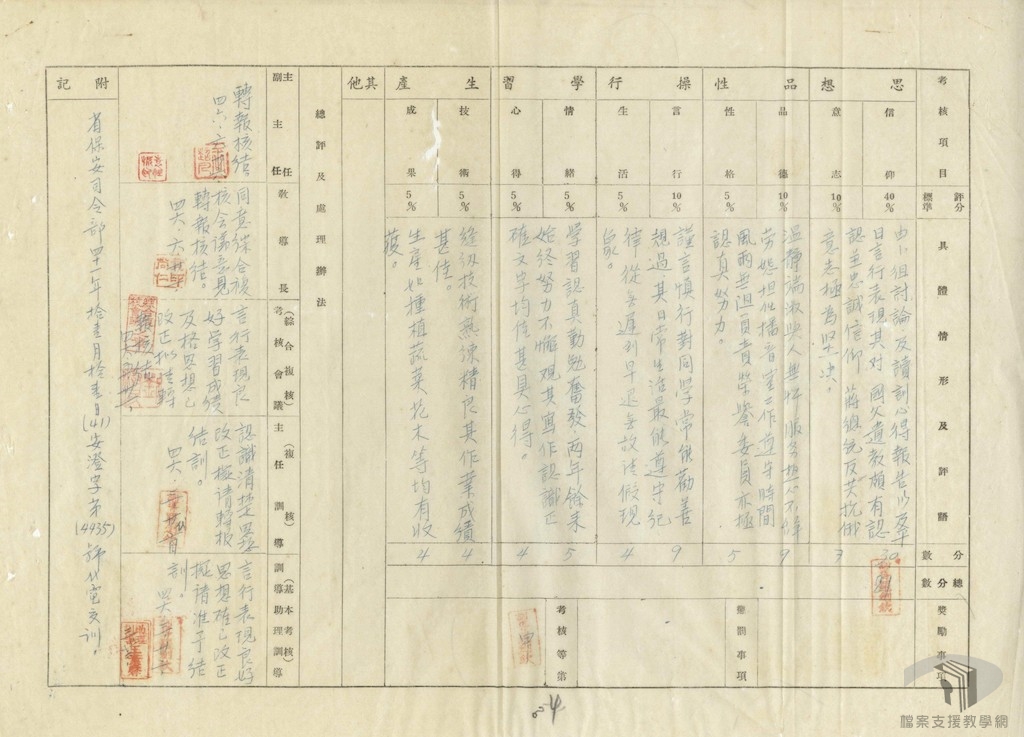 考核項目
評分標準
具體情形及評語
分數
總分數
獎勵事項
思想
信仰
40%
由小組討論及讀訓心得報告以及平
日言行表現其對 國父遺教頗有認
認主忠誠信仰 蔣總統反共抗俄
30
意志
10%
意志極為堅決。
品性
品德
10%
溫靜端淑與人無忤服務熱心不辭
勞怨担任播音室工作遵守時間
風雨無阻負責榮譽委員亦極
認真努力。
9
性格
5%
5
操行
言行
10%
謹言慎行對同學常能勸善
規過其日常生活最能遵守紀
律從無遲到早退無故請假現
象。
9
生活
5%
4
懲罰事項
學習
情緒
5%
學習認真勤勉奮發兩年餘來
始終努力不懈觀其寫作認識正
確文筆均佳甚具心得。
5
心得
5%
4
考核等第
生產
技術
5%
縫紉技術熟練精良其作業成績
甚佳。
4
成果
5%
生產如種植蔬菜花木等均有收
穫。
4
其他
總評及處理辦法
訓導助理訓導
(基本考核)
言行表現良好
思想確已改正
擬請准予結
訓。
主任訓導
(複核)
認識清楚
改正擬請轉報
結訓。
考核會議
(綜合複核)
言行表現良
好學習成績
及格思想已
改正擬准轉
報核結
教導長
同意綜合複
核會議意見
轉報核結。
主任
副主任
轉報核結
附記
省保安司令部四一年拾壹月拾壹日(41)安澄字第(4935)號代電交訓。
84
檔案支援教學網